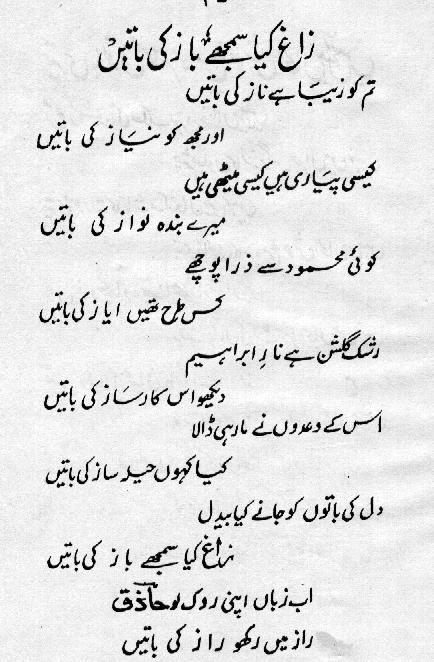 زاغ کیا سمجھے باز کی باتیں
تم کو زیبا ہے ناز کی باتیں
اور مجھ کو نیاز کی باتیں
کیسی پیاری ہیں کیسی میٹھی ہیں
میرے بندہ نواز کی باتیں
کوئی محمود سے ذرا پوچھے
کس طرح تھیں ایاز کی باتیں
رشک گلشن ہے نارِ ابراہیم
دیکھو اس کارساز کی باتیں
اس کے وعدوں نے مار ہی ڈالا
کیا کہوں حیلہ ساز کی باتیں
دل کی باتوں کو جانے کیا بیدل
زاغ کیا سمجھے باز کی باتیں
اب زباں اپنی روک لو حاذق
راز میں رکھو راز کی باتیں